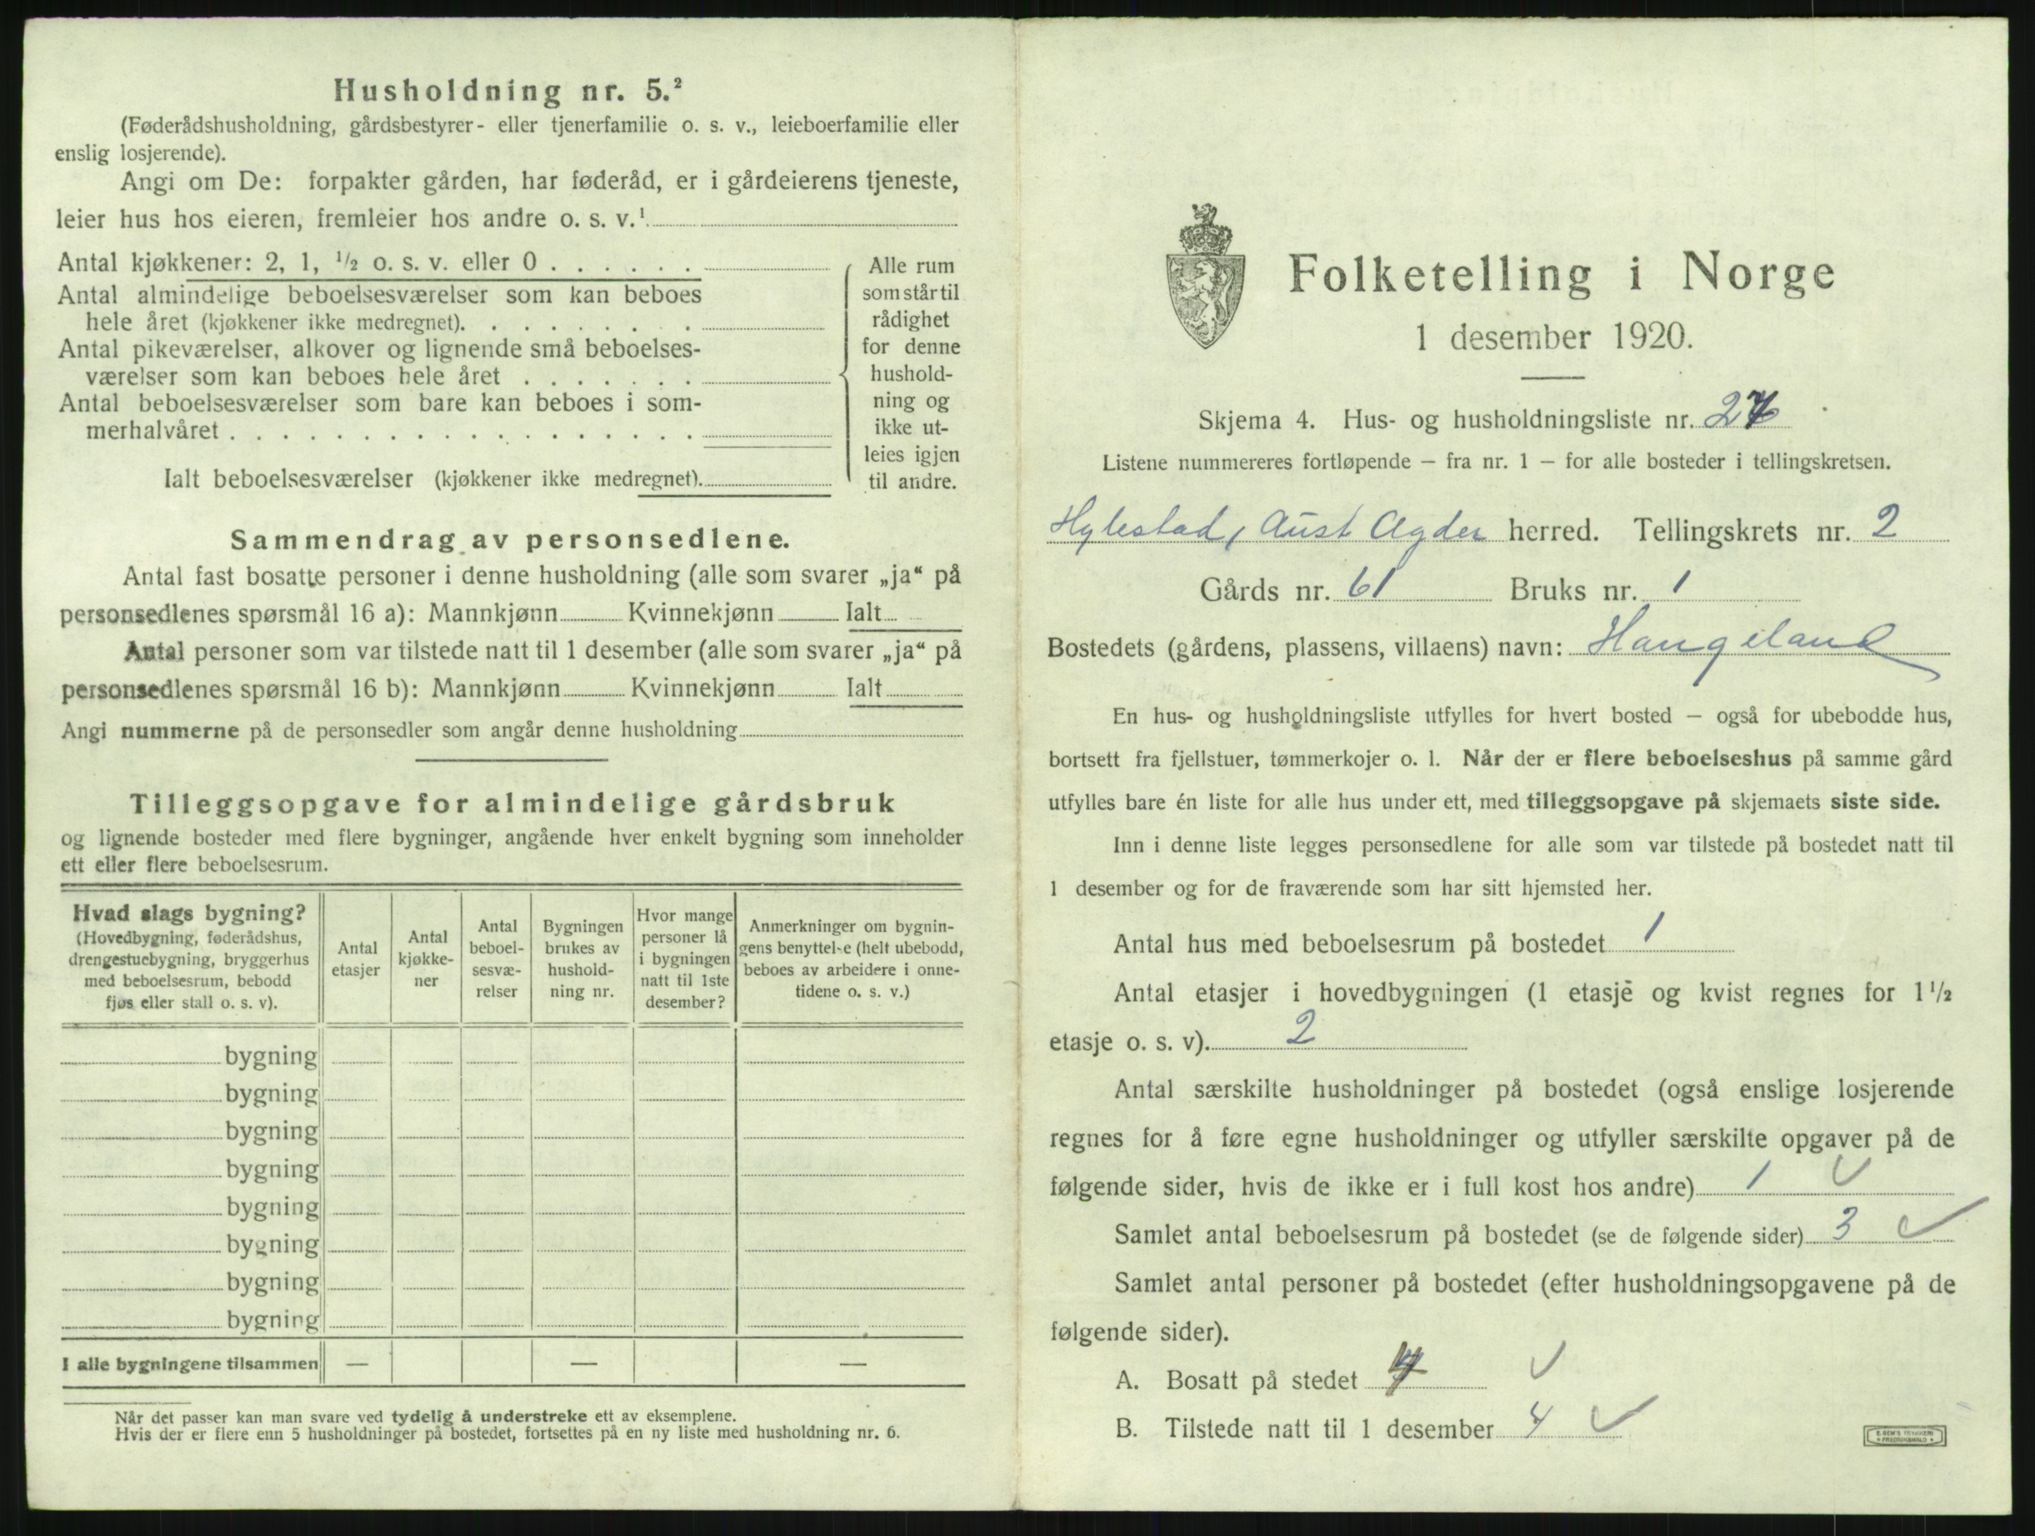 Husholdning nr. 5.²
(Føderådshusholdning, gårdsbestyrer- eller tjenerfamilie o. s. v., leieboerfamilie eller
enslig losjerende).
Angi om De: forpakter gården, har føderåd, er i gårdeierens tjeneste,
leier hus hos eieren, fremleier hos andre o. s. v.¹
Antal kjøkkener: 2, 1, ½ o. s. v. eller 0 . . . . . .
Antal almindelige beboelsesværelser som kan beboes
hele året (kjøkkener ikke medregnet). . . . . . . .
Antal pikeværelser, alkover og lignende små beboelses-
værelser som kan beboes hele året . . . . . . .
Antal beboelsesværelser som bare kan beboes i som-
merhalvåret . . . . . . . . . . . . . . . . . .
Ialt beboelsesværelser (kjøkkener ikke medregnet).
Alle rum
som står til
rådighet
for denne
hushold-
ning og
ikke ut-
leies igjen
til andre.
Sammendrag av personsedlene.
Antal fast bosatte personer i denne husholdning (alle som svarer „ja“ på
personsedlenes spørsmål 16 a): Mannkjønn Kvinnekjønn Ialt
Antal personer som var tilstede natt til 1 desember (alle som svarer „ja“ på
personsedlenes spørsmål 16 b): Mannkjønn Kvinnekjønn Ialt
Angi nummerne på de personsedler som angår denne husholdning
Tilleggsopgave for almindelige gårdsbruk
og lignende bosteder med flere bygninger, angående hver enkelt bygning som inneholder
ett eller flere beboelsesrum.
Hvad slags bygning?
(Hovedbygning, føderådshus,
drengestuebygning, bryggerhus
med beboelsesrum, bebodd
fjøs eller stall o. s. v).
Antal
etasjer
Antal
kjøkke-
ner
Antal
beboel-
sesvæ-
relser
Bygningen
brukes av
hushold-
ning nr.
Hvor mange
personer lå
i bygningen
natt til 1ste
desember?
Anmerkninger om bygnin-
gens benyttelse (helt ubebodd,
beboes av arbeidere i onne-
tidene o. s. v.)
bygning
bygning
bygning
bygning
bygning
bygning
bygning
bygning
I alle bygningene tilsammen — — —
Når det passer kan man svare ved tydelig å understreke ett av eksemplene.
Hvis der er flere enn 5 husholdninger på bostedet, fortsettes på en ny liste med husholdning nr. 6.
Folketelling i Norge
1 desember 1920.
Skjema 4. Hus- og husholdningsliste nr.
Listene nummereres fortløpende – fra nr. 1 – for alle bosteder i tellingskretsen.
Hylestad, Aust Agder herred. Tellingskrets nr. 2
Gårds nr. 61 Bruks nr. 1
Bostedets (gårdens, plassens, villaens) navn: Haugeland
En hus- og husholdningsliste utfylles for hvert bosted – også for ubebodde hus,
bortsett fra fjellstuer, tømmerkojer o. l. Når der er flere beboelseshus på samme gård
utfylles bare én liste for alle hus under ett, med tilleggsopgave på skjemaets siste side.
Inn i denne liste legges personsedlene for alle som var tilstede på bostedet natt til
1 desember og for de fraværende som har sitt hjemsted her.
Antal hus med beboelsesrum på bostedet 1
Antal etasjer i hovedbygningen (1 etasje og kvist regnes for 1½
etasje o. s. v). 2
Antal særskilte husholdninger på bostedet (også enslige losjerende
regnes for å føre egne husholdninger og utfyller særskilte opgaver på de
følgende sider, hvis de ikke er i full kost hos andre) 1 ✓
Samlet antal beboelsesrum på bostedet (se de følgende sider) 3 ✓
Samlet antal personer på bostedet (efter husholdningsopgavene på de
følgende sider).
A. Bosatt på stedet ✓
B. Tilstede natt til 1 desember 4 ✓